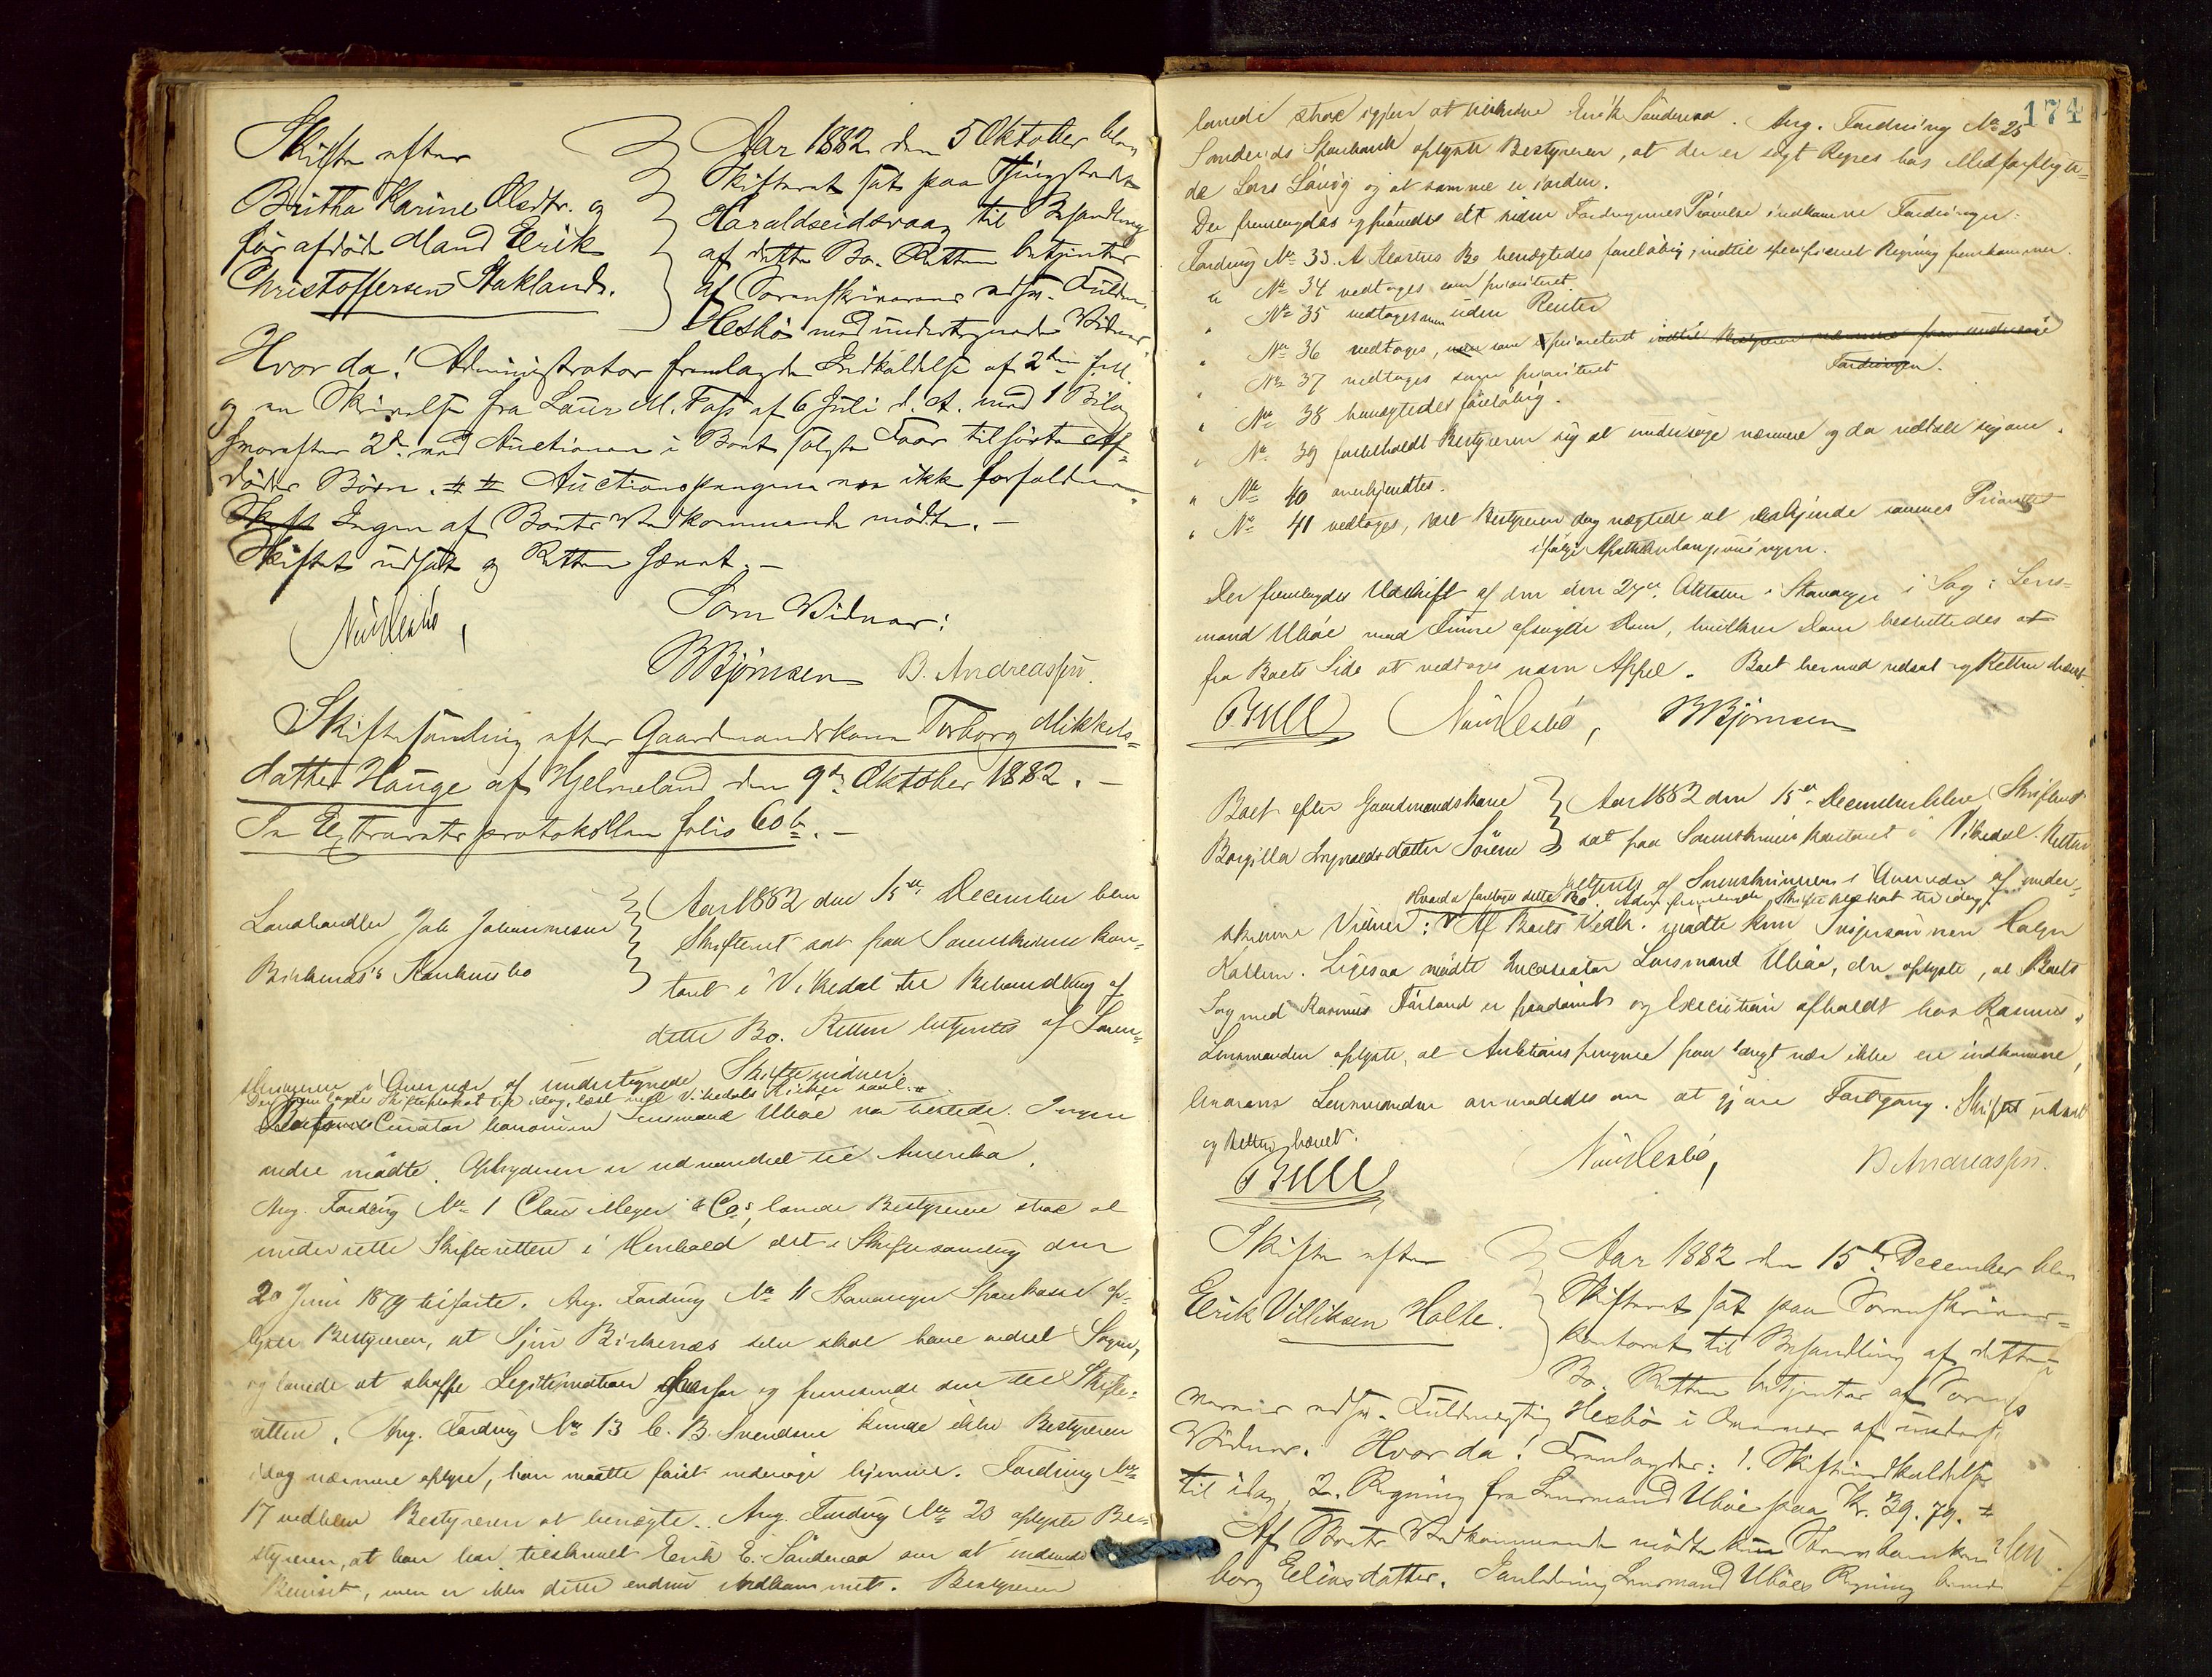 Skifte efter
Britha Karine Olsdtr. og
før afdøde Mand Erik
Christoffersen Staklands.
Aar 1882 den 5 Oktober blev
Skifteret sat paa Thingstedet
Haraldseidsvaag til Behandling
af dette Bo. Retten betjentes
af Sorenskriverens Fuldm.
Hesbö med undertegnede Vidner
Hvor da! Administrator fremlagde Indkaldelse af 2den
og en Skrivelse fra Laur M. Foss af 6 Juli d. A. med 1 Bilag
hvorefter 2de ved Auctionen i Boet solgte Faar tilhörte Af-
dödes Börn. Auctionspengene var ikke forfaldne.
Skift Ingen af Boets Vedkommende mödte. —
Skiftet udsat og Retten hævet. —
Som Vidner:
BBjørnsen B. Andreassen.
Skiftesamling efter Gaardmandskone Torborg Mikkels-
datter Hauge af Hjelmeland den 9de Oktober 1882. —
Se Extraretsprotokollen folio 60b. —
Landhandler Job Johannesen
Birkenæs's Konkursbo
Aar 1882 den 15de December blev
Skifteret sat paa Sorenskriverkon-
toret i Vikedal til Behandling af
dette Bo. Retten betjentes af Soren-
skriveren i Overvær af undertegnede Skiftevidner.
Der fremlagdes Skifteplakat til idag, læst ved Vikedals Kirke
Curator bonorum Lensmand Ubøe var tilstede. Ingen
andre mødte. Opbyderen er udvandret til Amerika.
Ang. Fordring No 1 Clau Meyer & Co, lovede Bestyreren strax at
underrette Skifteretten i Henhold det i Skiftesamling den
20 Juni 1879 tilførte. Ang. Fordring No 11 Stavanger Sparkasse op-
lyste Bestyreren, at Sjur Birkenæs selv skal have Sagen,
og lovede at skaffe Legitimation herfor og fremsende den til Skifte-
retten. Ang. Fordring No 13 C. B. Svendsen kunde ikke Bestyreren
idag nærmere oplyse, han maatte først undersøge hjemme. Fordring No
17 vedblev Bestyreren at benægte. Ang. Fordring No 20 oplyste Be-
styreren, at han har tilskrevet Erik E. Søndenaa om at indsende
Beviset, men er ikke dette endnu indkommet. Bestyreren
174
lovede strax igjen at tilskrive Erik Søndenaa. Ang. Fordring No 25
Sandeids Sparebank oplyste Bestyreren, at der er søgt Regres hos Medforpligte-
de Lars Løvig og at samme er i orden.
Der fremlagdes og prøvedes det siden Fordringernes Prøvelse indkomne Fordringer:
Fordring No 33. A Bo benægtedes foreløbig, indtil specificeret Regning fremkommer.
" No 34 vedtages som prioriteret.
" No 35 vedtages uden Renter
" No 36 vedtages, som prioriteret indtil Bestyreren
Fordringen.
" No 37 vedtages som prioriteret
" No 38 benægtedes foreløbig.
" No 39 forbeholdt Bestyreren sig at undersøge nærmere og da udtale sig om.
" No 40 anerkjendtes.
" No 41 vedtages, idet Bestyreren dog nægtede at anerkjende sammes Prioritet
ifølge
Der fremlagdes Udskrift af den den 27de Oktober i Stavanger i Sag: Lens-
mand Ubøe mod afsagte Dom, hvilken Dom besluttedes
fra Boets Side at vedtages uden Appel. Boet hermed udsat og Retten hævet.
Bull BBjørnsen
Boet efter Gaardmandskone
Borgilla datter
Aar 1882 den 15de December blev Skifteret
sat paa Sorenskriverkontoret i Vikedal. Retten
betjent af Sorenskriveren i Overvær af under-
Hvorda foretoges dette Bo. Skifteplakat til idag.
skrevne Vidner: Af Boets Vedk. mødte kun
Ligesaa mødte Incassator Lensmand Ubøe, der oplyste, at Boets
Sag med Rasmus Førland er paadømt og Execution afholdt hos Rasmus.
Lensmanden oplyste, at Auktionspengene paa langt nær ikke ere indkomne,
hvorom Lensmanden anmodedes om at gjøre Fortgang. Skiftet udsat
og Retten hævet.
Bull B Andreassen.
Skifte efter
Erik Villiksen Holte.
Aar 1882 den 15de December blev
Skifteret sat paa Sorenskriver-
kontoret til Behandling af dette
Bo. Retten betjentes af Sorens
Fuldmægtig Hesbö i Overvær af undert.
Vidner. Hvor da! Fremlagdes: 1. Skifteindkaldelse
til idag, 2. Regning fra Lensmand Ubøe paa Kr. 39.79.
Af Boets Vedkommende mödte kun
borg Eliasdatter. Lensmand Ubøes Regning